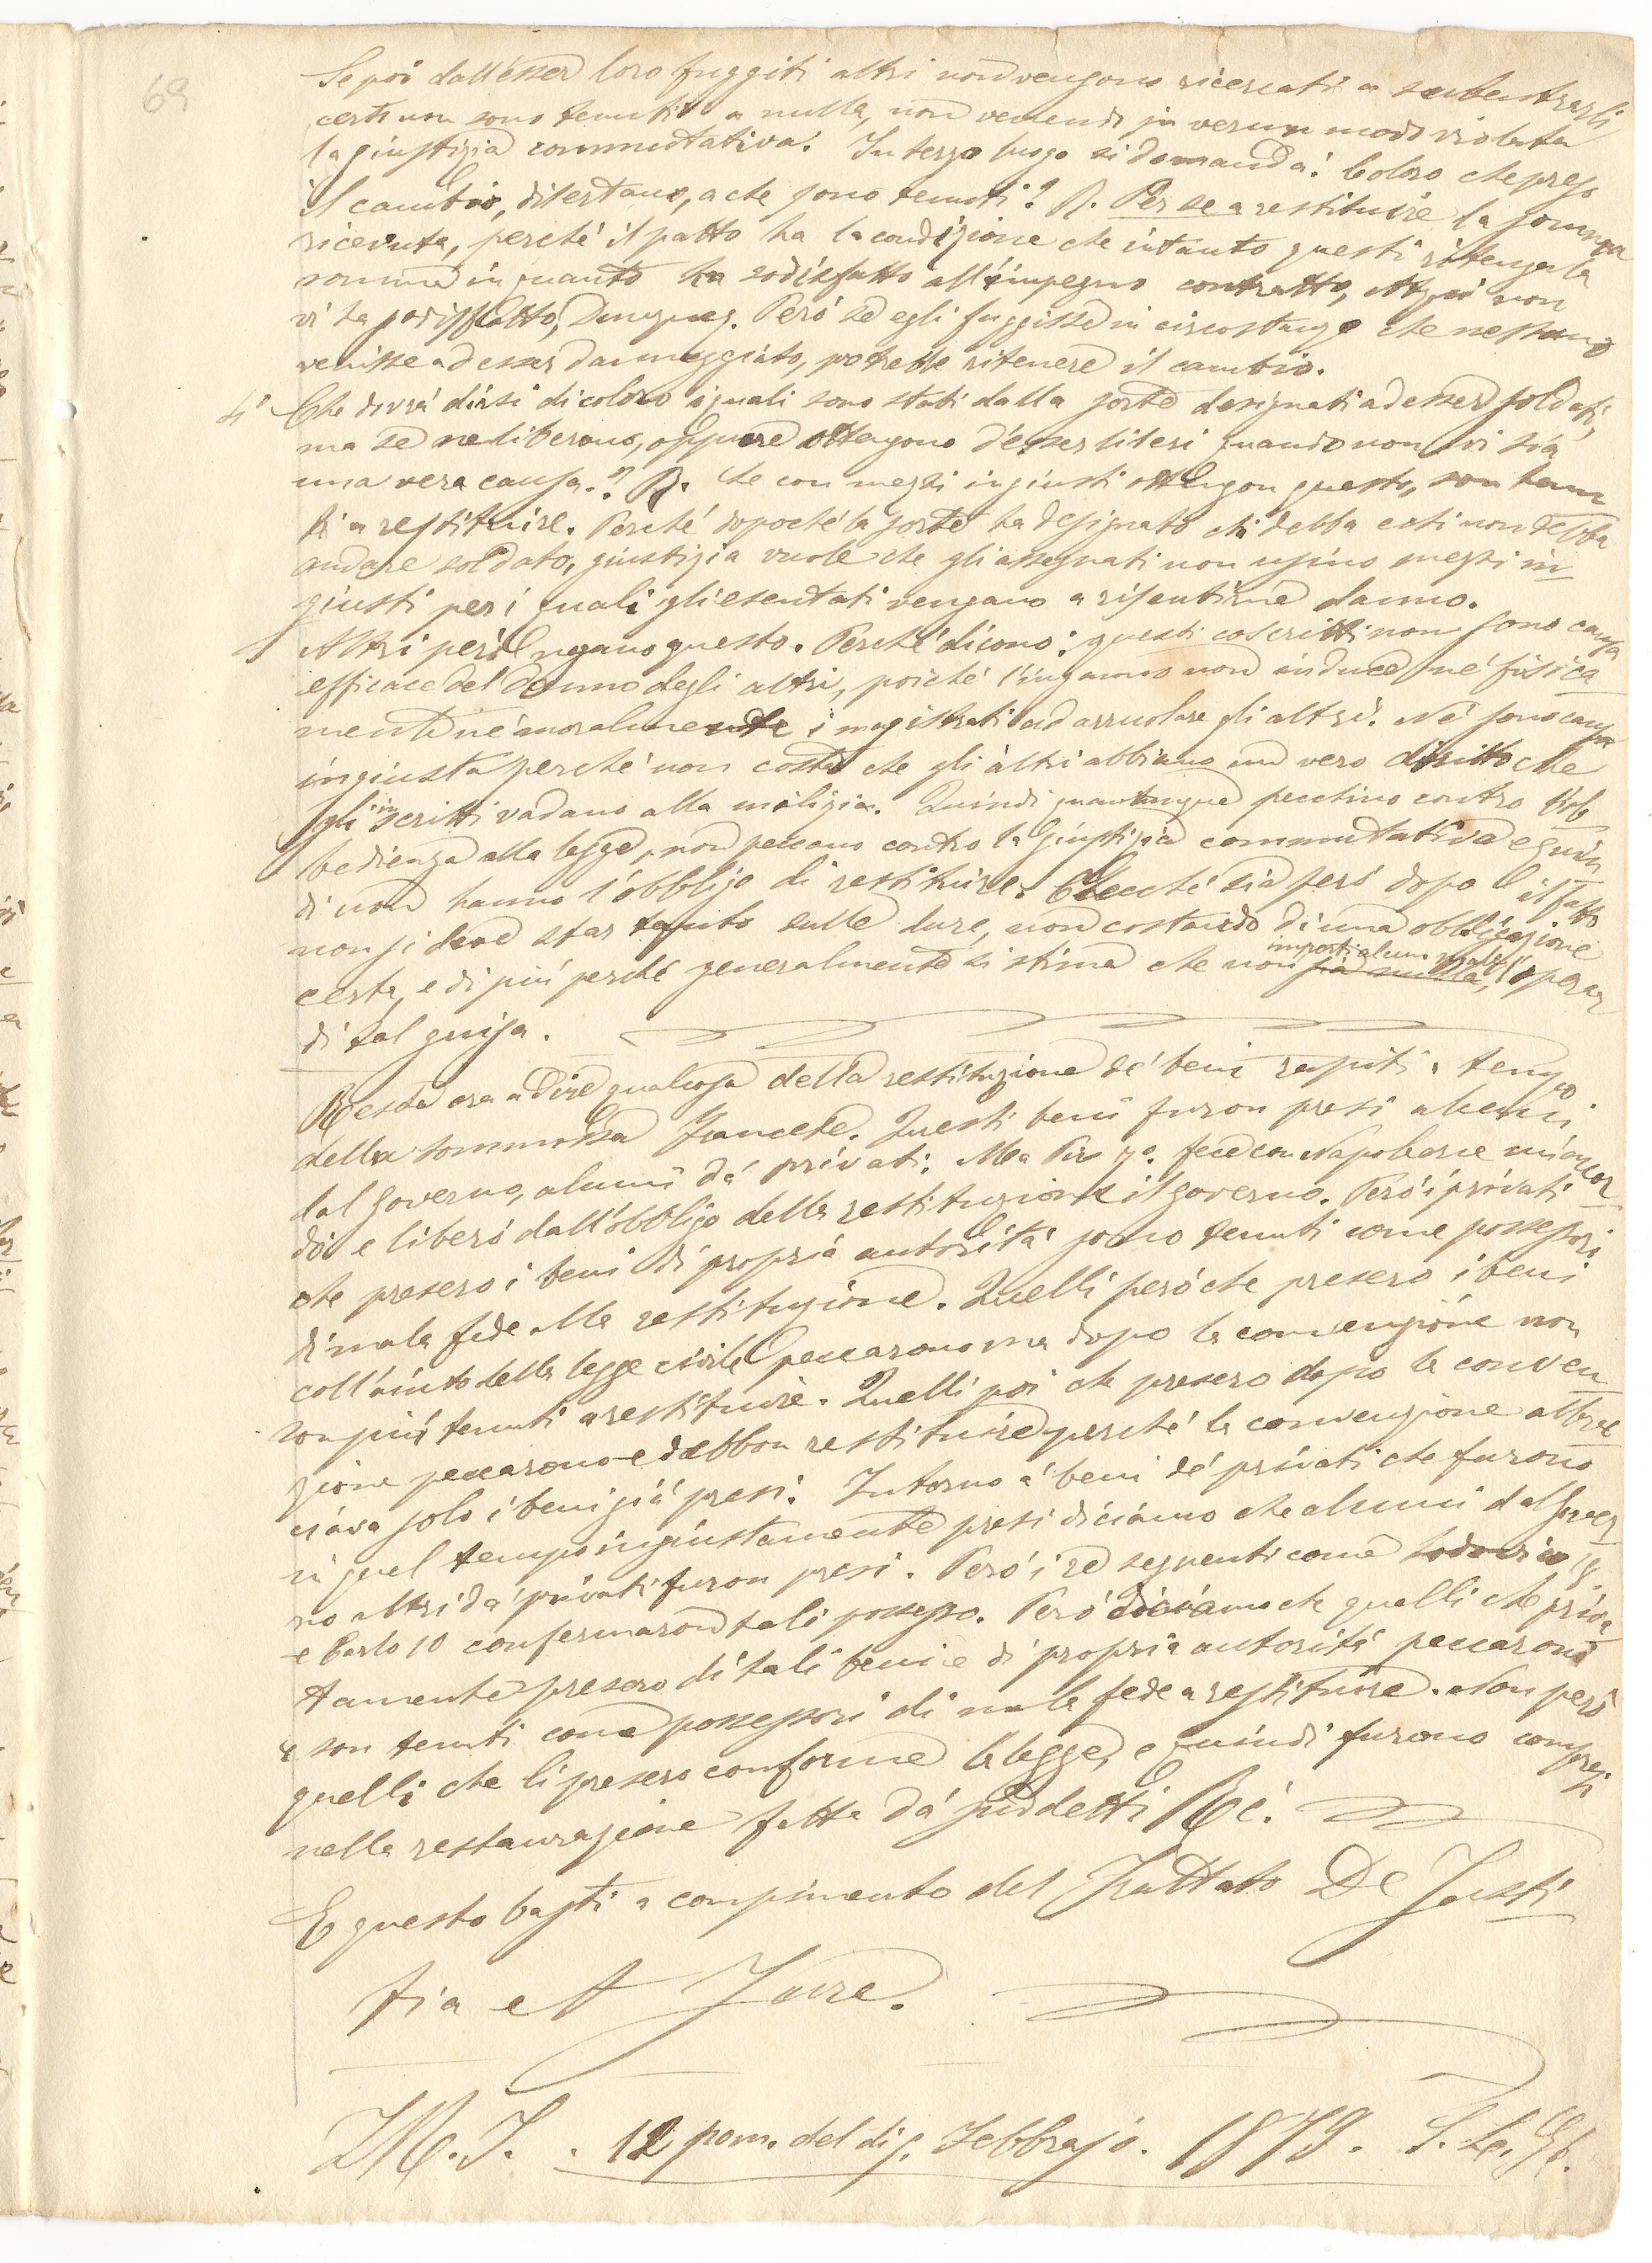 69
Se poi dall'esser loro fuggiti altri non vengono ricercati a subentrargli
certo non sono tenuti a nulla, non venendo in verun modo violata
la giustizia commutativa. In terzo luogo si domanda: Coloro che preso
il cambio, disertano, a che sono tenuti? R. Per se a restituire la somma
ricevuta, perché il patto ha la condizione che intanto questi ritenga la
somma in quanto ha sodisfatto all'impegno contratto, Atqui non
vi ha sodisfatto, Dunque. Peró se egli fuggisse in circostanze che nessuno
venisse ad esser danneggiato, potrebbe ritenere il cambio.
4° Che dovrá dirsi di coloro i quali sono stati dalla sorte designati ad esser soldati,
ma se ne liberano, oppure ottengono d'esser litesi quando non vi sia
una vera causa.? R. Se con mezzi ingiusti ottengon questo, son tenu
ti a restituire. Perché dopoché la sorte ha designato chi debba e chi non debba
andare soldato, giustizia vuole che gli assegnati non usino mezzi in
giusti per i quali gli esentati vengano a risentirne danno.
Altri peró negano questo. Perché dicono: questi coscritti non sono causa
efficace del danno degli altri, poiché l'inganno non induce né fisica
mente né moralmente i magistrati ad arruolare gli altri. Né sono causa
ingiusta perché non costa che gli altri abbiano un vero diritto che
gli inscritti vadano alla milizia. Quindi quantunque pecchino contro l'ob
bedienza alla legge, non peccano contro la Giustizia commutativa e quin
di non hanno l'obbligo di restituire. Checché sia peró dopo il fatto
non si deve star tanto sulle dure, non costando di una obbligazione
certa, e di piú perché generalmente si stima che non importi alcun male, l'operar
di tal guisa.
Resta ora a Dire qualcosa della restituzione de' beni rapiti a tempo
della sommossa Francese. Questi beni furon presi alcuni
dal Governo, alcuni da' privati. Ma Pio 7°. fece con Napoleone un'accor
do e liberó dall'obbligo della restituzione il governo. Peró i privati
che presero i beni di propria autoritá sono tenuti come possessori
di mala fede alla restituzione. Quelli peró che presero i beni
coll'aiuto della legge civile peccarono ma dopo la convenzione non
son piú tenuti a restituire. Quelli poi che presero dopo la conven
zione peccarono e debbon restituire perché la convenzione abbrac
ciava solo i beni giá presi. Intorno a' beni de' privati che furono
in quel tempo ingiustamente presi diciamo che alcuni dal Gover
no altri da' privati furon presi. Peró i re seguenti come Lodovico 18
e Carlo 10 confermaron tali possesso. Peró diciamo che quelli che priva
tamente presero di tali beni e di propria autoritá peccarono
e son tenuti come possessori di mala fede a restituire. Non peró
quelli che li presero conforme la legge, e quindi furono compresi
nella restaurazione fatta da' suddetti Ré.
E questo basti a compimento del Trattato De Justi
tia et Jure.
12 pom. del di 9. Febbrajo. 1879.